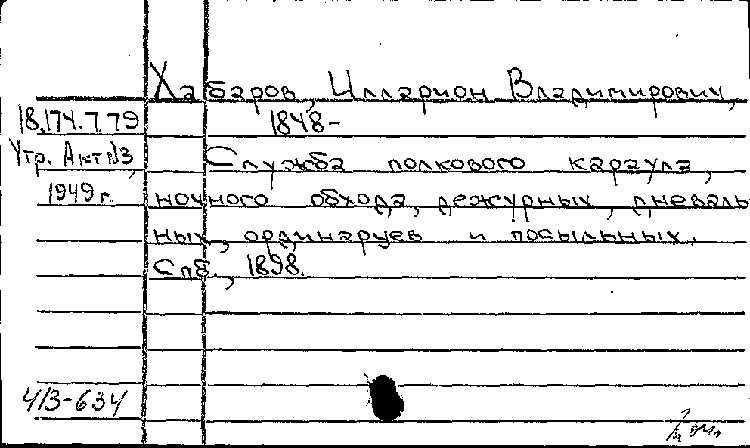 Хабаров, Илларион Владимирович,
18.174.7.79
1848-
Утр. Акт №3,
Служба полкового караула,
1949 г.
ночного обхода, дежурных, дневаль
ных, ординарцев и посыльных.
Спб., 1898.
413-634